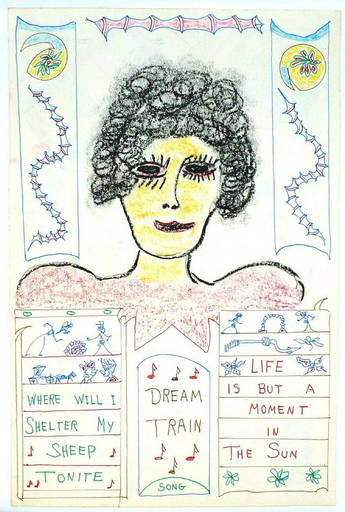 WHERE WILL I
SHELTER MY
SHEEP
TONITE
DREAM
TRAIN
SONG
LIFE
IS BUT A
MOMENT
IN
THE SUN